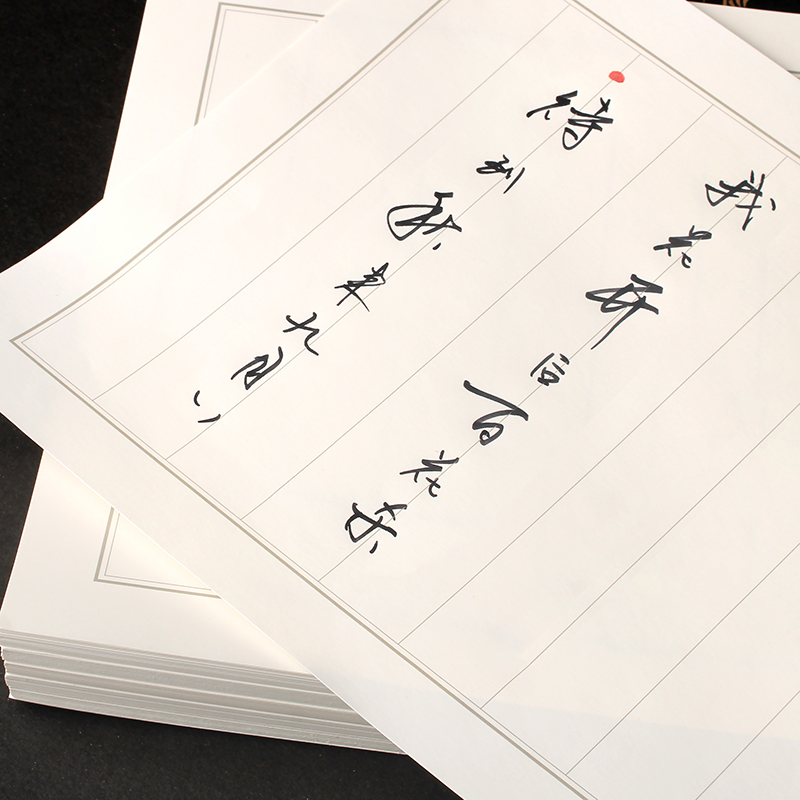 待到秋来九月八
我花开后百花杀